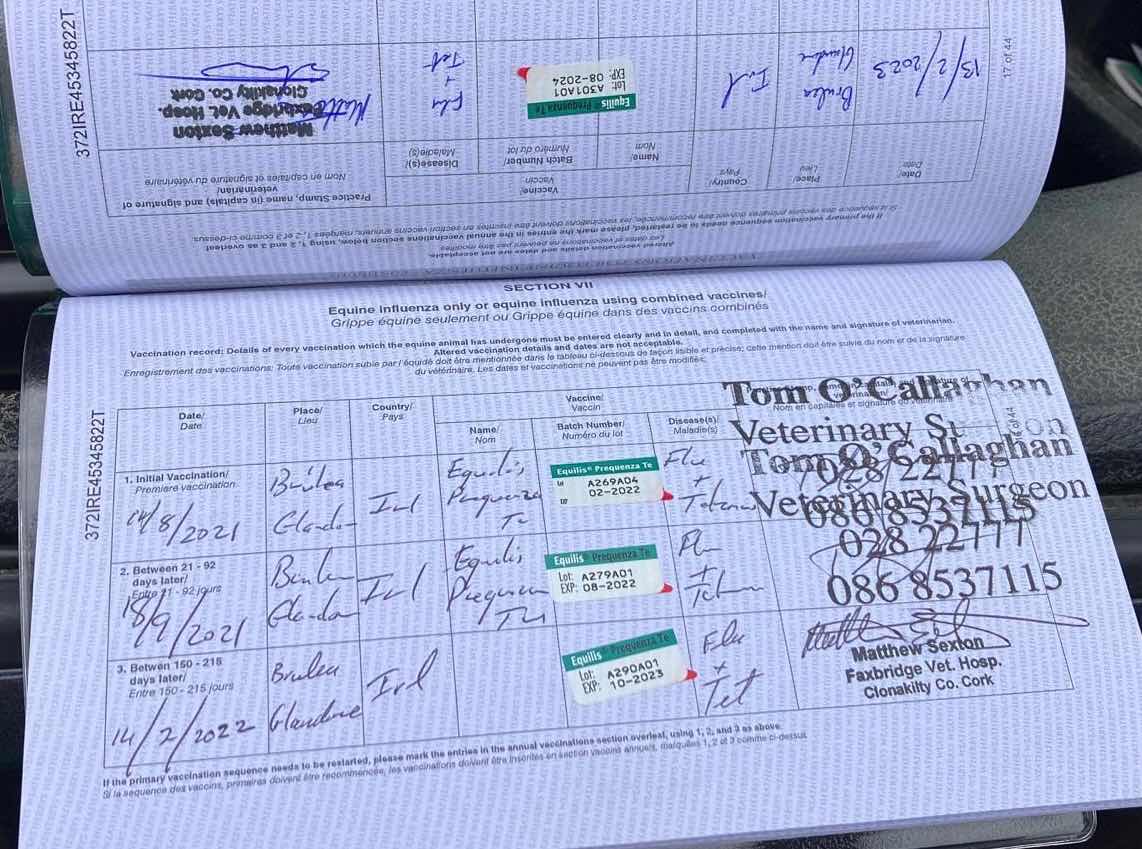 372IRE45345822T
17 of 44
Altered vaccination details and dates are not acceptable.
Les dates et vaccinations ne peuvent pas être modifiés
If the primary vaccination sequence needs to be restarted, please mark the entries in the annual vaccinations section below, using 1, 2 and 3 as overleaf
Date/
Date
Place/
Lieu
Country/
Pays
Vaccine/
Vaccin
Name/
Nom
Batch Number/
Numéro du lot
Disease(s)/
Maladie(s)
Practice Stamp, name (in capitals) and signature of
veterinarian/
Nom en capitales et signature du vétérinaire
13/2/2023
Brulea
Glandore
Irl
Equilis® Prequenza Te
Lot: A301A01
EXP: 08-2024
Flu
+
Tet
Matthew Sexton
Faxbridge Vet. Hosp.
Clonakilty Co. Cork
SECTION VII
Equine influenza only or equine influenza using combined vaccines/
Grippe équine seulement ou Grippe équine dans des vaccins combinés
Vaccination record: Details of every vaccination which the equine animal has undergone must be entered clearly and in detail, and completed with the name and signature of veterinarian.
Altered vaccination details and dates are not acceptable.
Enregistrement des vaccinations: Toute vaccination subie par l'équidé doit être mentionnée dans le tableau ci-dessous de façon lisible et précise; cette mention doit être suivie du nom et de la signature
du vétérinaire. Les dates et vaccinations ne peuvent pas être modifiés.
372IRE45345822T
Date/
Date
Place/
Lieu
Country/
Pays
Vaccine/
Vaccin
Name/
Nom
Batch Number/
Numéro du lot
Disease(s)/
Maladie(s)
1. Initial Vaccination/
Premiere vaccination
14/8/2021
Brulea
Glandore
Irl
Equilis
Prequenza
Te
Equilis® Prequenza Te
A269A04
02-2022
Flu
+
Tetanus
Tom O'Callaghan
Veterinary Surgeon
028 22777
086 8537115
2. Between 21 - 92
days later/
Entre 21 - 92 jours
18/9/2021
Brulea
Glandore
Irl
Equilis
Prequenza
Te
Equilis Prequenza Te
Lot: A279A01
EXP: 08-2022
Flu
+
Tetanus
Tom O'Callaghan
Veterinary Surgeon
028 22777
086 8537115
3. Betwen 150 - 215
days later/
Entre 150 - 215 jours
14/2/2022
Brulea
Glandore
Irl
Equilis® Prequenza Te
Lot: A290A01
EXP: 10-2023
Flu
+
Tet
Matthew Sexton
Faxbridge Vet. Hosp.
Clonakilty Co. Cork
If the primary vaccination sequence needs to be restarted, please mark the entries in the annual vaccinations section overleaf, using 1, 2, and 3 as above.
Si la sequence des vaccins, primaires doivent être recommencée, les vaccinations doivent être inscrites en section vaccins annuels, marquées 1, 2 et 3 comme ci-dessus.